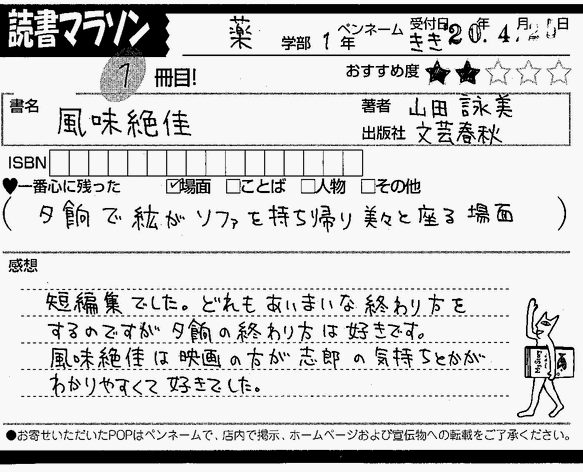 読書マラソン
薬 学部 1年 ペンネーム きき 受付日 20年 4月 20日
1 冊目!
おすすめ度 ★★☆☆☆
書名 風味絶佳
著者 山田詠美
出版社 文芸春秋
ISBN
♥一番心に残った ☑場面 □ことば □人物 □その他
(夕餉で紘がソファを持ち帰り美々と座る場面)
感想
短編集でした。どれもあいまいな終わり方を
するのですが夕餉の終わり方は好きです。
風味絶佳は映画の方が志郎の気持ちとかが
わかりやすくて好きでした。
●お寄せいただいたPOPはペンネームで、店内で掲示、ホームページおよび宣伝物への転載をご了承ください。